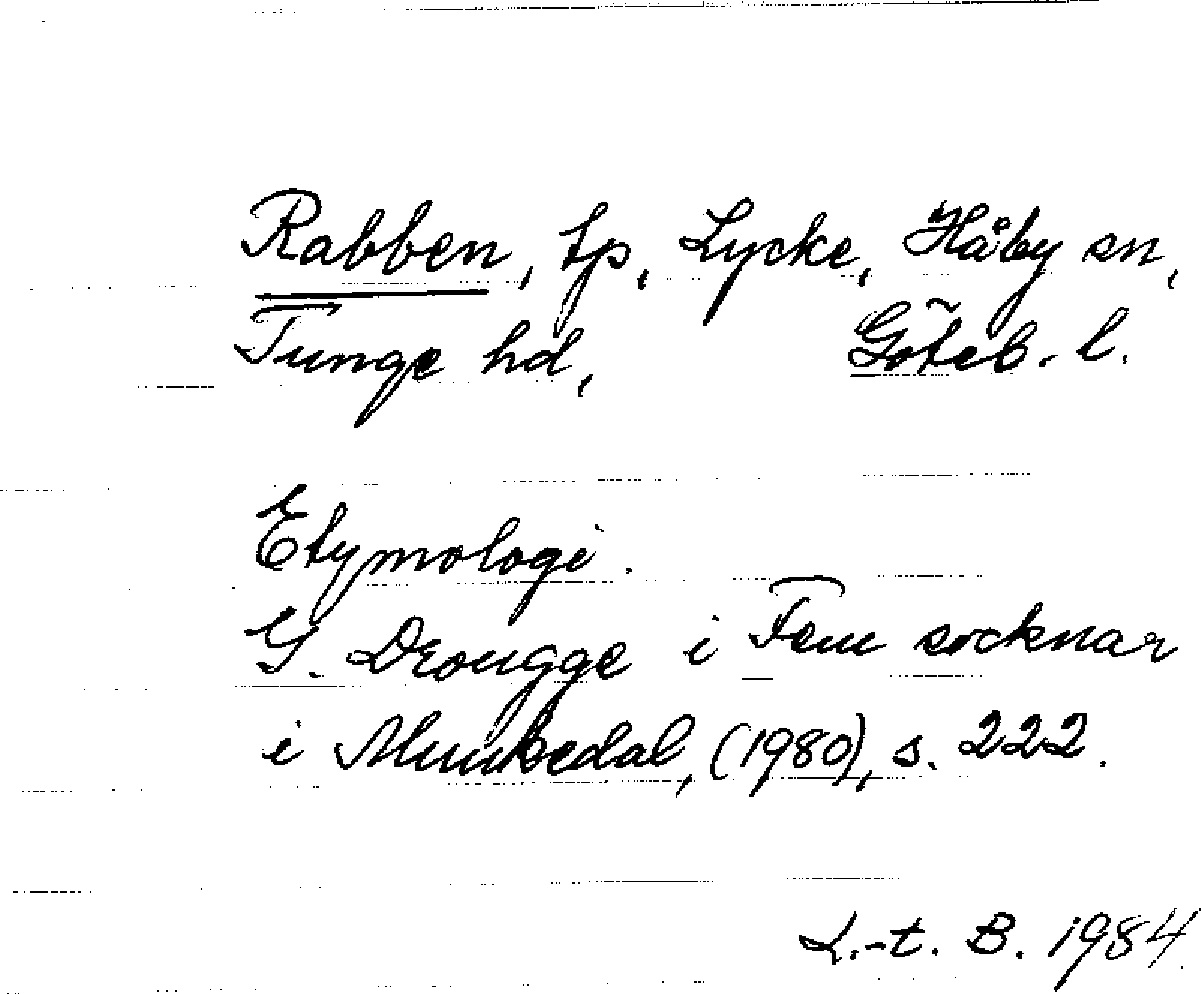 Rabben, tp, Lycke, Håby sn,
Tunge hd, Göteb. l.
Etymologi.
G. Drougge i Fem socknar
i Munkedal, (1980), s. 222.
L.-t. B. 1984.